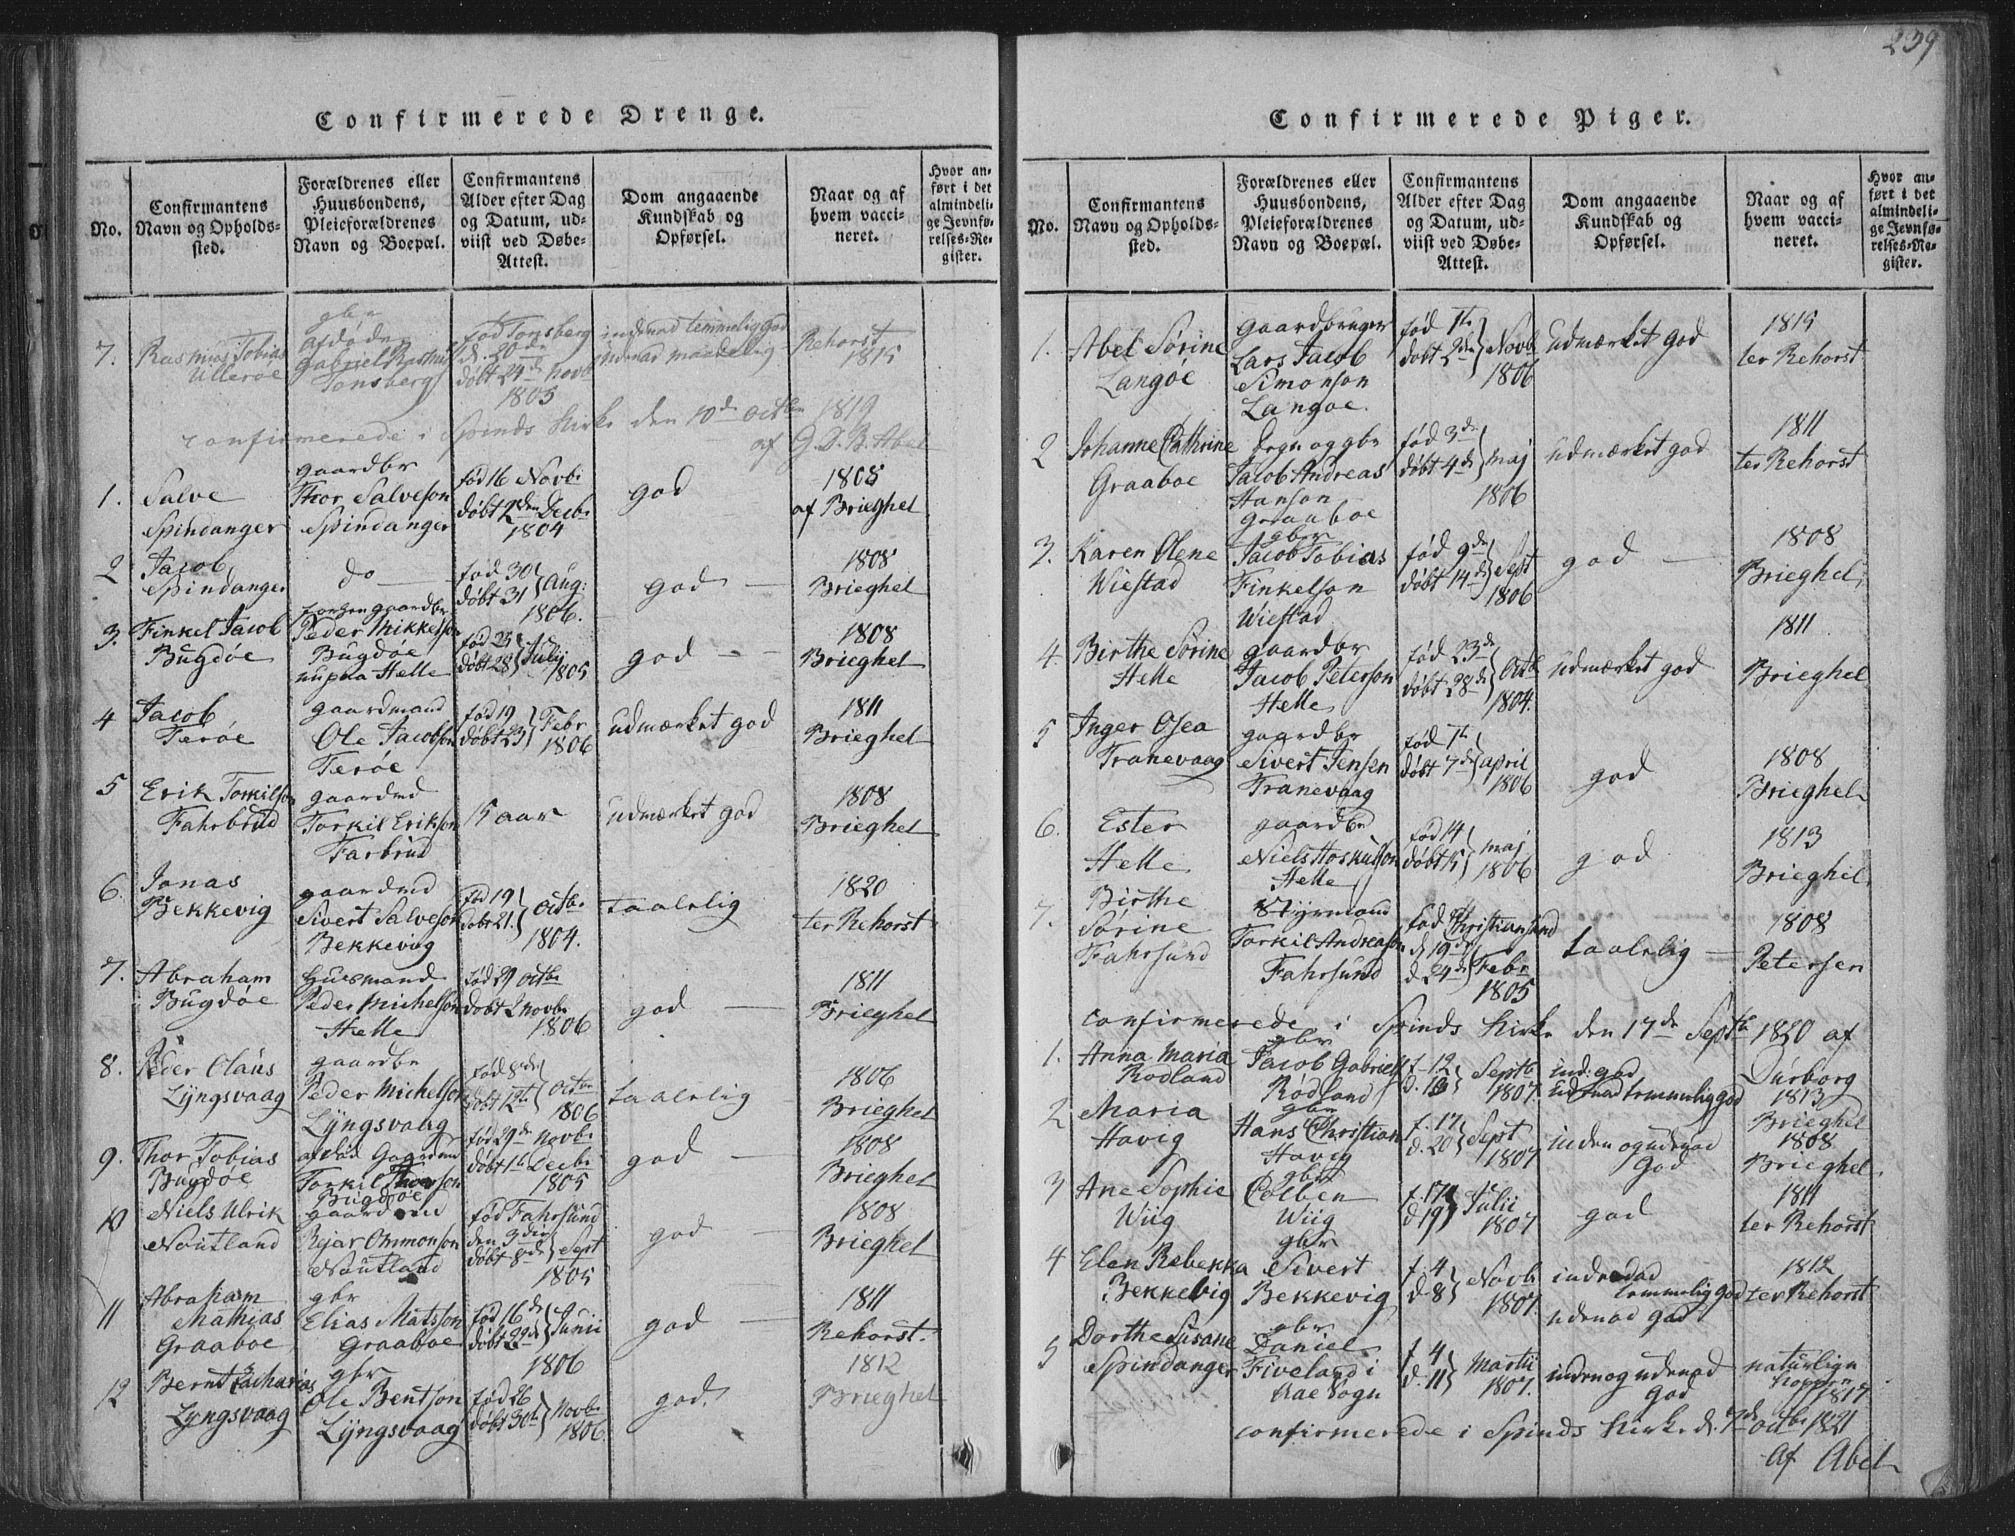 239
Confirmerede Drenge.
No.
Confirmantens Navn og Opholds-sted.
Forældrenes eller Huusbondens, Pleieforældrenes Navn og Boepæl.
Confirmantens Alder efter Dag og Datum, ud-viist ved Døbe-Attest.
Dom angaaende Kundskab og Opførsel.
Naar og af hvem vacci-neret.
Hvor an-ført i det almindeli-ge Jevnfø-relses-Re-gister.
7. Rasmus Tobias Ullerøe
gbr afdøde Gabriel Rasmus Tonsberg
fød Tonsberg d. 20de døbt 24de Novb 1805
indenad temmelig god udenad maadelig
Rehorst 1815
confirmerede i Spinds Kirke den 10de Octbr 1819 af G. D. B. Abel
1. Salve Spindanger
gaardbr Thor Salveson Spindanger
fød 16 Novbr døbt 2den Decbr 1804
god
1805 af Brieghel
2 Jacob Spindanger
do
fød 30 døbt 31 Aug: 1806.
god
1808 Brieghel
3. Finkel Jacob Bugdøe
gaardbr Peder Mikkelson Bugdøe nu paa Helle
fød 25 døbt 28 Julij 1805
god
1808 Brieghel
4 Jacob Terøe
gaardmand Ole Jacobson Terøe
fød 19 døbt 23 Febr 1806
udmærket god
1811 Brieghel
5 Erik Torkilson Fahrbrud
gaardmd Torkil Erikson Farbrud
15 aar
udmærket god
1808 Brieghel
6. Jonas Bekkevig
gaardmd Sivert Salveson Bekkevig
fød 19 døbt 21. Octbr 1804.
taalelig
1820 ter Rehorst
7. Abraham Bugdøe
Huusmand Peder Michelson Helle
fød 29 Octbr døbt 2 Novbr 1806
god
1811 Brieghel
8. Peder Claus Lyngsvaag
gaardbr Peder Michelson Lyngsvaag
fød 8de døbt 12te Octbr 1806
taalelig
1806 Brieghel
9. Thor Tobias Bugdøe
afdød Gaardmd Torkil Thorson Bugdøe
fød 29de Novbr døbt 1te Decbr 1805
god
1808 Brieghel
10 Niels Ulrik Nautland
gaardmd Rejar Ommonson Nautland
fød Fahrsund den 3die døbt 8de Sept 1805
god
1808 Brieghel
11 Abraham Mathias Graaboe
gbr Elias Matsson Graaboe
fød 16de døbt 22de Junii 1806
god
1811 Rehorst.
12 Bernt Zacharias Lyngsvaag
gbr Ole Bentson Lyngsvaag
fød 26 døbt 30te Novbr 1806.
god.
1812 Brieghel
Confirmerede Piger.
No.
Confirmantens Navn og Opholds-sted.
Forældrenes eller Huusbondens, Pleieforældrenes Navn og Boepæl.
Confirmantens Alder efter Dag og Datum, ud-viist ved Døbe-Attest.
Dom angaaende Kundskab og Opførsel.
Naar og af hvem vacci-neret.
Hvor an-ført i det almindeli-ge Jevnfø-relses-Re-gister.
1. Abel Sørine Langøe
Gaardbruger Lars Jacob Simonson Langøe.
fød 1te døbt 2de Novb 1806
udmærket god
1815 ter Rehorst
2 Johanne Cathrine Graaboe
Sogn og gbr Jacob Andreas Hanson Graaboe
fød 3de døbt 4de Maj 1806
udmærket god
1811 ter Rehorst
3. Karen Olene Wiestad
gbr Jacob Tobias Finkelson Wiestad
fød 9de døbt 14de Sept 1806
god
1808 Brieghel
4 Birthe Sørine Helle
gaardbr Jacob Peterson Helle
fød 23de døbt 28de Octb 1804.
udmærket god
1811 Brieghel
5 Inger Osea Tranevaag
gaardbr Sivert Jensen Tranevaag
fød 1te døbt 7de april 1806
god
1808 Brieghel
6. Ester Helle
gaardbr Niels Hoskulson Helle
fød 14 døbt 15 Maj 1806
god
1813 Brieghel
7. Birthe Sørine Fahrsund
Styrmand Torkil Andreason Fahrsund
fød Christiansund d. 19de d. 24de Febr 1805
taalelig
1808 Petersen
confirmerede i Spinds Kirke den 17de Septb 1820 af
1. Anna Maria Rødland
gbr Jacob Gabriels Rødland
f. 12 d. 13 Septb 1807.
ind: god udenad temmelig god
Durborg 1813
2 Maria Havig
gbr Hans Christian Havig
f. 17 d. 20 Sept 1807
inden og udenad God
Brieghel 1808 Brieghel
3 Ane Sophie Wiig
gbr Colben Wiig
f. 17 d 19 Julii 1807
god
1811 ter Rehorst
4 Elen Rebekka Bekkevig
gbr Sivert Bekkevig
f. 4 d. 8 Novb 1807.
indenad temmelig god udenad God
1812 ter Rehorst
5 Dorthe Susane Spindanger
gbr Daniel Fiveland i Aae Sogn
f. 4 d. 11 Martii 1807.
inden og udenad God
naturlign Kopper 1817
confirmerede i Spinds Kirke d. 7de Octbr 1821 af Abel